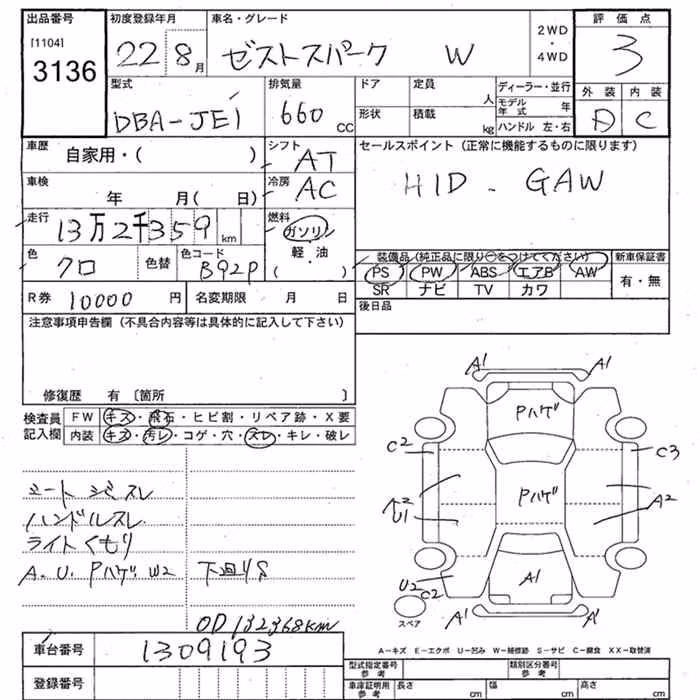 出品番号
[1104]
3136
初度登録年月
22 8月
車名・グレード
ゼストスパーク W
2WD
・
4WD
評価点
3
型式
DBA-JE1
排気量
660 CC
ドア
形状
定員
人
積載
kg
ディーラー・並行
モデル年式 年
ハンドル 左・右
外装 内装
C
車歴
自家用・( )
シフト
AT
セールスポイント (正常に機能するものに限ります)
HID . GAW
車検
年 月( 日)
冷房
AC
走行
13万2千359 km
燃料
ガソリン
軽・油
( )
色
クロ
色替
色コード
B92P
装備品 (純正品に限り○をつけてください)
PS PW ABS エアB AW
SR ナビ TV カワ
新車保証書
有・無
R券 10000 円
名変期限 月 日
後日品
注意事項申告欄 (不具合内容等は具体的に記入して下さい)
修復歴 有 〔箇所 〕
検査員
記入欄
FW キズ・飛石・ヒビ割・リペア跡・X要
内装 キズ・汚レ・コゲ・穴・スレ・キレ・破レ
シート シミスレ
ハンドルスレ
ライトくもり
A. U. Pハゲ. W2 下廻りS
OD 132368km
A1 A1
Pハゲ
C2 C3
Pハゲ
A2
U1
U2
C2
A1
A1 A1
スペア
A-キズ E-エクボ U-凹み W-補修跡 S-サビ C-腐食 XX-取替済
車台番号 1309193
登録番号
型式指定番号
参考
類別区分番号
参考
車庫証明用
参考
長さ cm 幅 cm 高さ cm